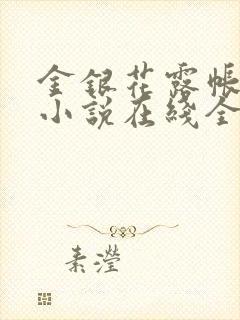 金銀花露帳
小說在綫全
素瀅